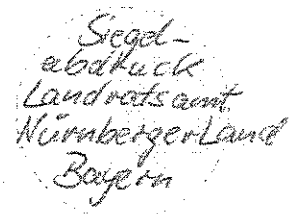 Siegel-
abdruck
Landratsamt
Nürnberger Land
Bayern